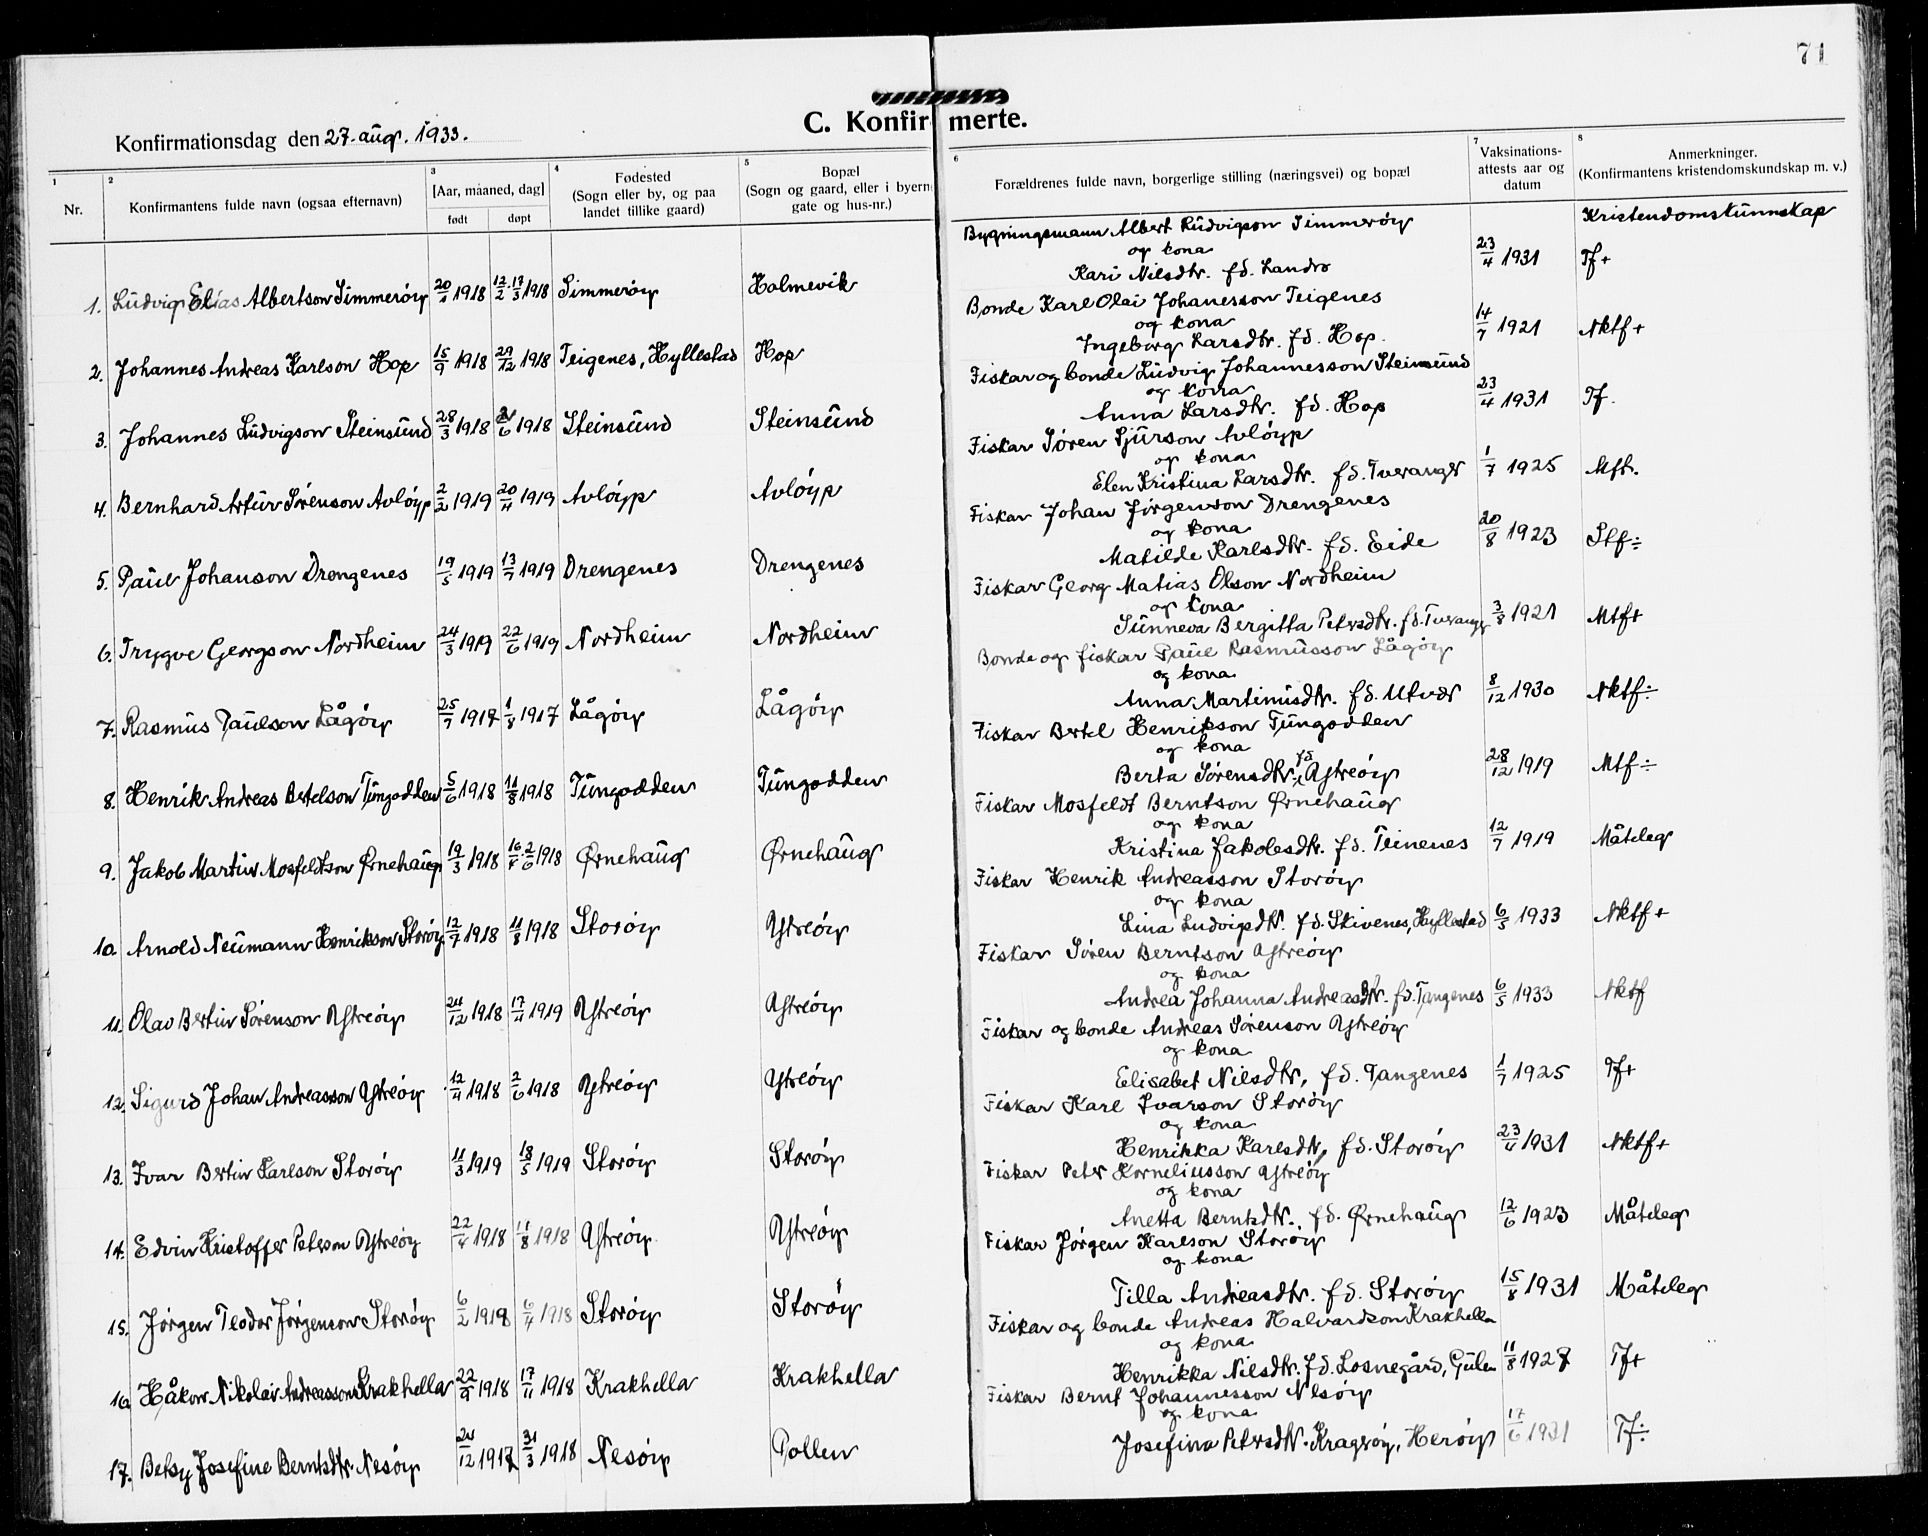 71
C. Konfirmerte.
Konfirmationsdag den 27. aug. 1933.
1 2 3 4 5 6 7 8
Nr.
Konfirmantens fulde navn (ogsaa efternavn)
[Aar, maaned, dag]
født døpt
Fødested
(Sogn eller by, og paa
landet tillike gaard)
Bopæl
(Sogn og gaard, eller i byern
gate og hus-nr.)
Forældrenes fulde navn, borgerlige stilling (næringsvei) og bopæl
Vaksinations-
attests aar og
datum
Anmerkninger.
(Konfirmantens kristendomskundskap m. v.)
Kristendomskunnskap
Bygningsmann Albert Ludvigson Simmerøy
og kona
Kari Nilsdtr. fd. Landro 23/4 1931 Tf+
1. Ludvig Elias Albertson Simmerøy 20/1 1918 12/2 17/3 1918 Simmerøy Holmevik
Bonde Karl Olai Johanesson Teigenes
og kona
Ingeborg Larsdtr. fd. Hop. 14/7 1921 Nktf+
2. Johannes Andreas Karlson Hop 15/9 1918 29/12 1918 Teigenes, Hyllestad Hop
Fiskar og bonde Ludvig Johannesson Steinsund
og kona
Anna Larsdtr. fd. Hop 23/4 1931 Tf.
3. Johannes Ludvigson Steinsund 28/3 1918 /6 1918 Steinsund Steinsund
Fiskar Søren Sjurson Avløyp
og kona
Elen Kristina Larsdtr. fd. Tveranger 1/7 1925 Mtf.
4. Bernhard Artur Sørenson Avløyp 2/2 1919 20/4 1919 Avløyp Avløyp
Fiskar Johan Jørgenson Drengenes
og kona
Matilde Karlsdtr. fd. Eide 20/8 1923 Stf÷
5. Paul Johanson Drengenes 19/5 1919 13/7 1919 Drengenes Drengenes
Fiskar Georg Matias Olson Nordheim
og kona
Sunneva Bergitta Petersdtr. fd. Tveranger 3/8 1921 Mtf+
6. Trygve Georgson Nordheim 24/3 1919 22/6 1919 Nordheim Nordheim
Bonde og fiskar Paul Rasmusson Lågøy
og kona
Anna Martinusdtr. fd. Utvær 8/12 1930 Nktf÷
7. Rasmus Paulson Lågøy 25/7 1917 1/8 1917 Lågøy Lågøy
Fiskar Bertel Henrikson Tungodden
og kona
Berta Sørensdtr. fd Ytreøy 28/12 1919 Mtf÷
8. Henrik Andreas Bertelson Tungodden 5/6 1918 11/8 1918 Tungodden Tungodden
Fiskar Mosfeldt Berntson Ørnehaug
og kona
Kristina Jakobsdtr. fd. Teinenes 12/7 1919 Måteleg
9. Jakob Martin Mosfeldtson Ørnehaug 19/3 1918 2/6 1918 Ørnehaug Ørnehaug
Fiskar Henrik Andreasson Storøy
og kona
Lina Ludvigsdtr. fd. Skivenes, Hyllestad 6/5 1933 Nktf+
10. Arnold Neumann Henrikson Storøy 12/7 1918 11/8 1918 Storøy Ytreøy
Fiskar Søren Berntson Ytreøy
og kona
Andrea Johanna Andreasdtr. fd. Tangenes 6/5 1933 Nktf
11. Olav Bertin Sørenson Ytreøy 24/12 1918 17/4 1919 Ytreøy Ytreøy
Fiskar og bonde Andreas Sørenson Ytreøy
og kona
Elisabet Nilsdtr, fd. Tangenes 1/7 1925 Tf+
12. Sigurd Johan Andreasson Ytreøy 12/4 1918 2/6 1918 Ytreøy Ytreøy
Fiskar Karl Ivarson Storøy
og kona
Henrikka Karlsdtr, fd. Storøy 23/4 1931 Nktf+
13. Ivar Bertin Karlson Storøy 11/3 1919 18/5 1919 Storøy Storøy
Fiskar Peter Korneliusson Ytreøy
og kona
Anetta Berntsdtr., fd. Ørnehaug 12/6 1923 Måteleg
14. Edvin Kristoffer Peterson Ytreøy 22/4 1918 11/8 1918 Ytreøy Ytreøy
Fiskar Jørgen Karlson Storøy
og kona
Tilla Andreasdtr. fd. Storøy 15/8 1931 Måteleg
15. Jørgen Teodor Jørgenson Storøy 6/2 1918 6/4 1918 Storøy Storøy
Fiskar og bonde Andreas Halvardson Krakhella
og kona
Henrikka Nilsdtr. fd. Losnegård, Gulen 11/8 1927 Tf+
16. Håkon Nikolai Andreasson Krakhella 22/9 1918 17/11 1918 Krakhella Krakhella
Fiskar Bernt Johannesson Nesøy
og kona
Josefina Petersdtr. Kragsøy, Herøy 17/6 1931 Tf÷
17. Betsy Josefine Berntsdtr. Nesøy 24/12 1917 31/3 1918 Nesøy Pollen